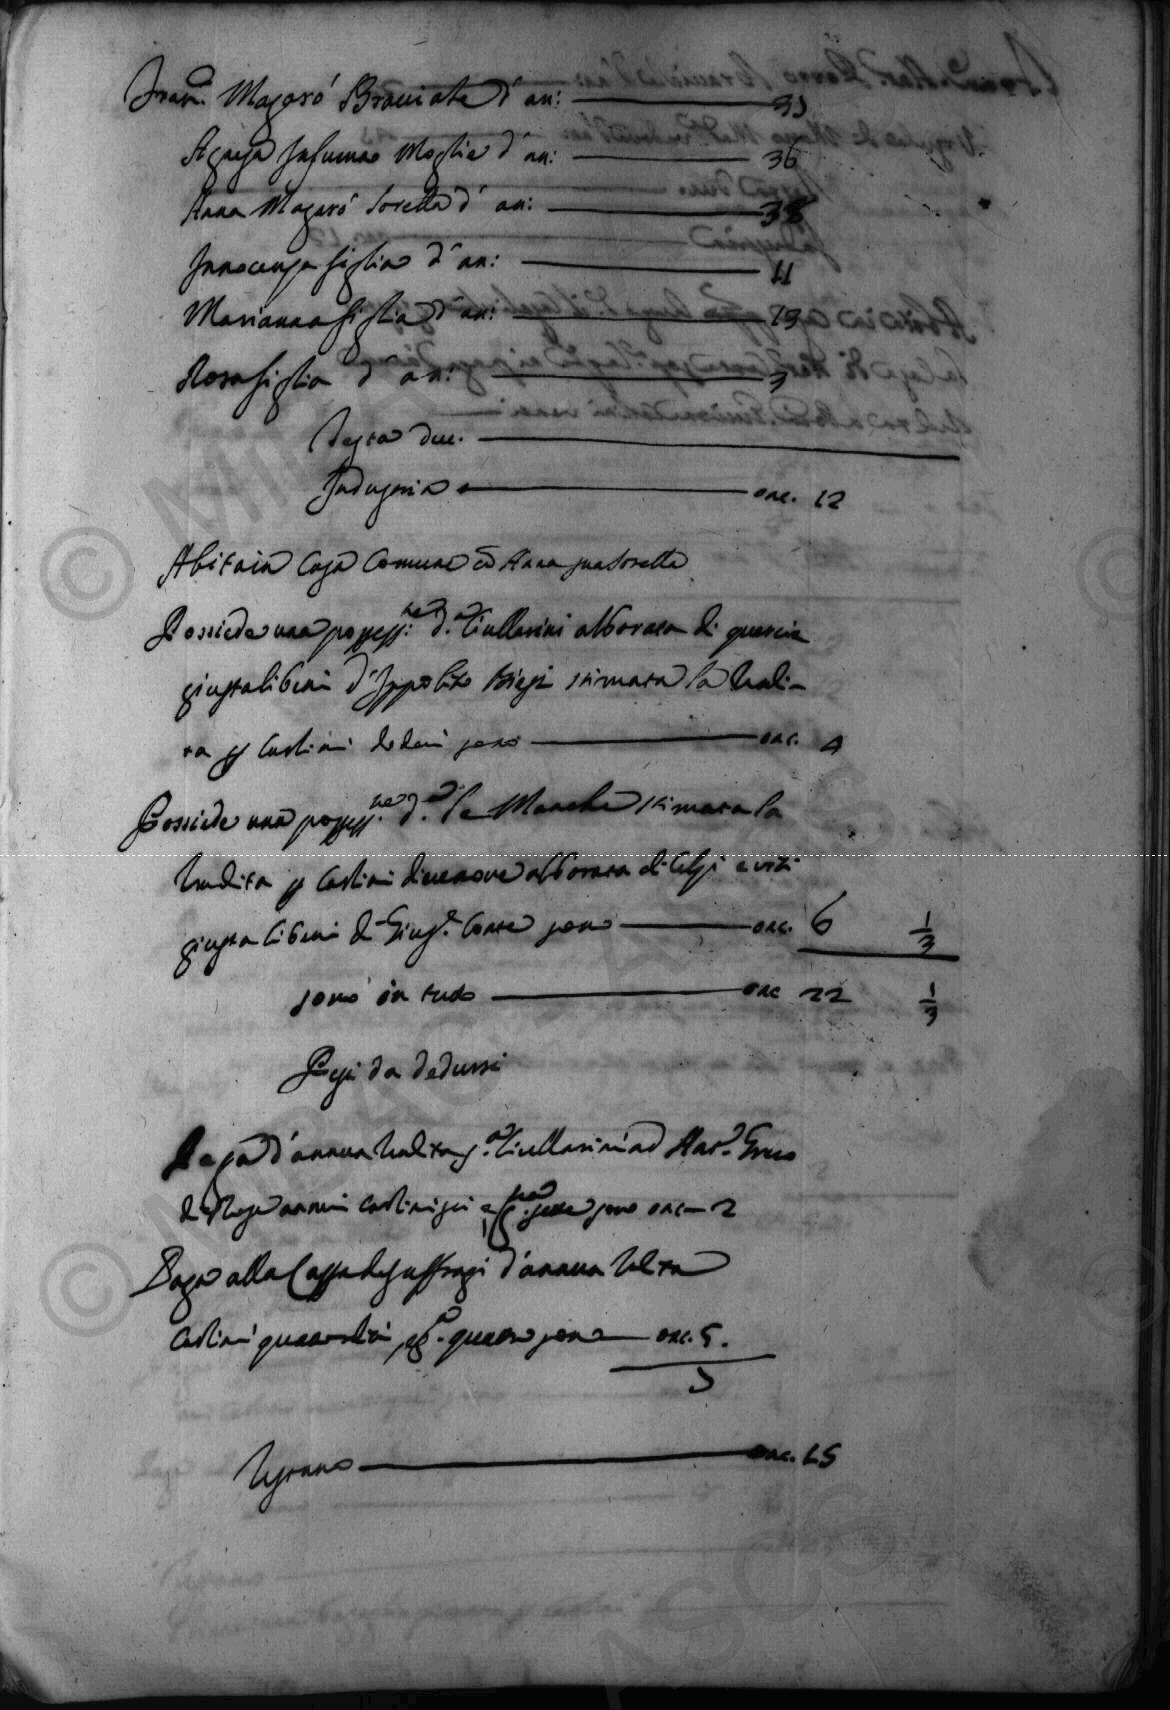 Fran.co Magarò Bracciale d'an: 33
Agnesa Infusino Moglie d'an: 36
Anna Magarò Sorella d'an: 38
Innocenza figlia d'an: 11
Marianna figlia d'an: 
Rosa figlia d'an: 3
Testa duc.
Industria onc. 12
Abita in Casa Comune cō Anna sua Sorella
Possiede una possess:ne d.a Ciullarini alborata di quercie
giusta li beni d'Ippolito stimata la rendi-
ta p Carlini dodeci sono onc. 4
Possiede una possess.ne d.a le Manche stimata la
rendita p Carlini diecenove alborata di Celzi e viti
giusta li beni di Gius.e Conte sono onc. 6 1/3
sono in tutto onc 22 1/3
Pesi da dedursi
Paga d'annua rendita s.a Ciullarini ad
annui Carlini sei e sono onc 2
Paga alla Cassa de suffragi d'annua
Carlini quattordici, e quattro sono onc. 5.
onc. 15
© MiBAC
ASCS